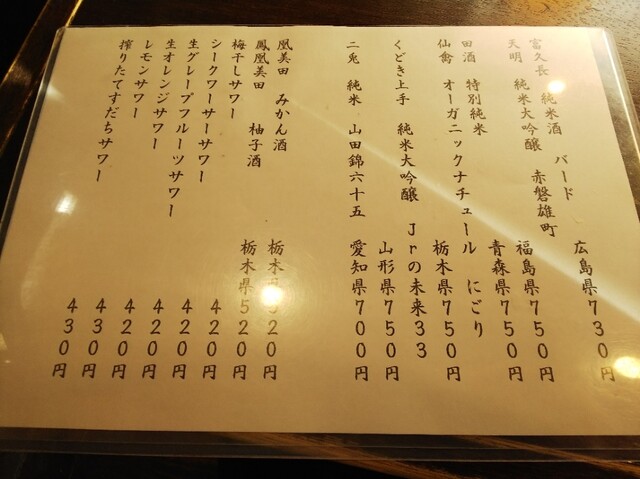 富久長 純米酒 バード 広島県730円
天明 純米大吟醸 赤磐雄町 福島県750円
田酒 特別純米 青森県750円
仙禽 オーガニックナチュール にごり 栃木県750円
くどき上手 純米大吟醸 Jrの未来33 山形県750円
二兎 純米 山田錦六十五 愛知県700円
凰美田 みかん酒 栃木県520円
鳳凰美田 柚子酒 栃木県520円
梅干しサワー 420円
シークワーサーサワー 420円
生グレープフルーツサワー 420円
生オレンジサワー 420円
レモンサワー 430円
搾りたてすだちサワー 430円